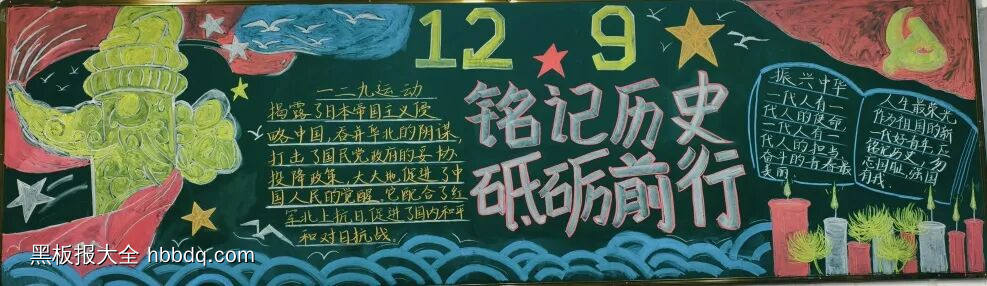 12 9
铭记历史
砥砺前行
一二九运动
揭露了日本帝国主义侵
略中国,吞并华北的阴谋,
打击了国民党政府的妥协
投降政策,大大地促进了中
国人民的觉醒。它配合了红
军北上抗日,促进了国内和平
和对日抗战。
振兴中华
一代人有一
代人的使命
一代人有一
代人的担当
奋斗的青春最
美丽
人生最荣光
作为祖国的新
一代好青年
铭记历史,勿
忘国耻,强国
有我.
黑板报大全 hbbdq.com